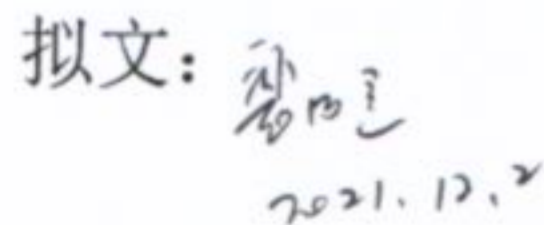 拟文：
2021.12.2